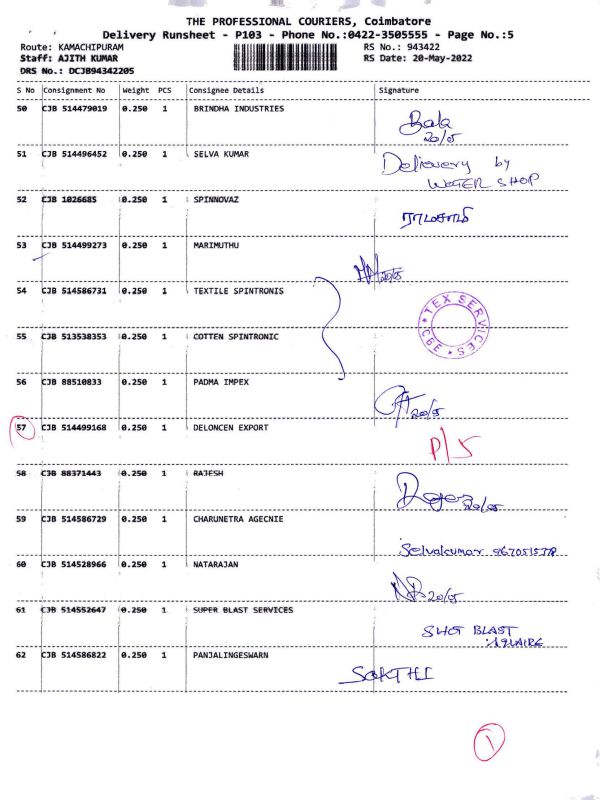 THE PROFESSIONAL COURIERS, Coimbatore
Delivery Runsheet - P103 - Phone No.:0422-3505555 - Page No.:5
Route: KAMACHIPURAM RS No.: 943422
Staff: AJITH KUMAR RS Date: 20-May-2022
DRS No.: DCJB94342205
S No Consignment No Weight PCS Consignee Details Signature
50 CJB 514479019 0.250 1 BRINDHA INDUSTRIES
Bala
20/05
51 CJB 514496452 0.250 1 SELVA KUMAR
Delievery by
WATER SHOP
52 CJB 1026685 0.250 1 SPINNOVAZ
ராமசாமி
53 CJB 514499273 0.250 1 MARIMUTHU
20/05
54 CJB 514586731 0.250 1 TEXTILE SPINTRONIS
TEX SERVICES
CBE
55 CJB 513538353 0.250 1 COTTEN SPINTRONIC
56 CJB 88510833 0.250 1 PADMA IMPEX
20/05
57 CJB 514499168 0.250 1 DELONCEN EXPORT
P/5
58 CJB 88371443 0.250 1 RAJESH
20/05
59 CJB 514586729 0.250 1 CHARUNETRA AGECNIE
Selvakumar
60 CJB 514528966 0.250 1 NATARAJAN
20/05
61 CJB 514552647 0.250 1 SUPER BLAST SERVICES
BLAST
62 CJB 514586822 0.250 1 PANJALINGESWARN
SAKTHI
1